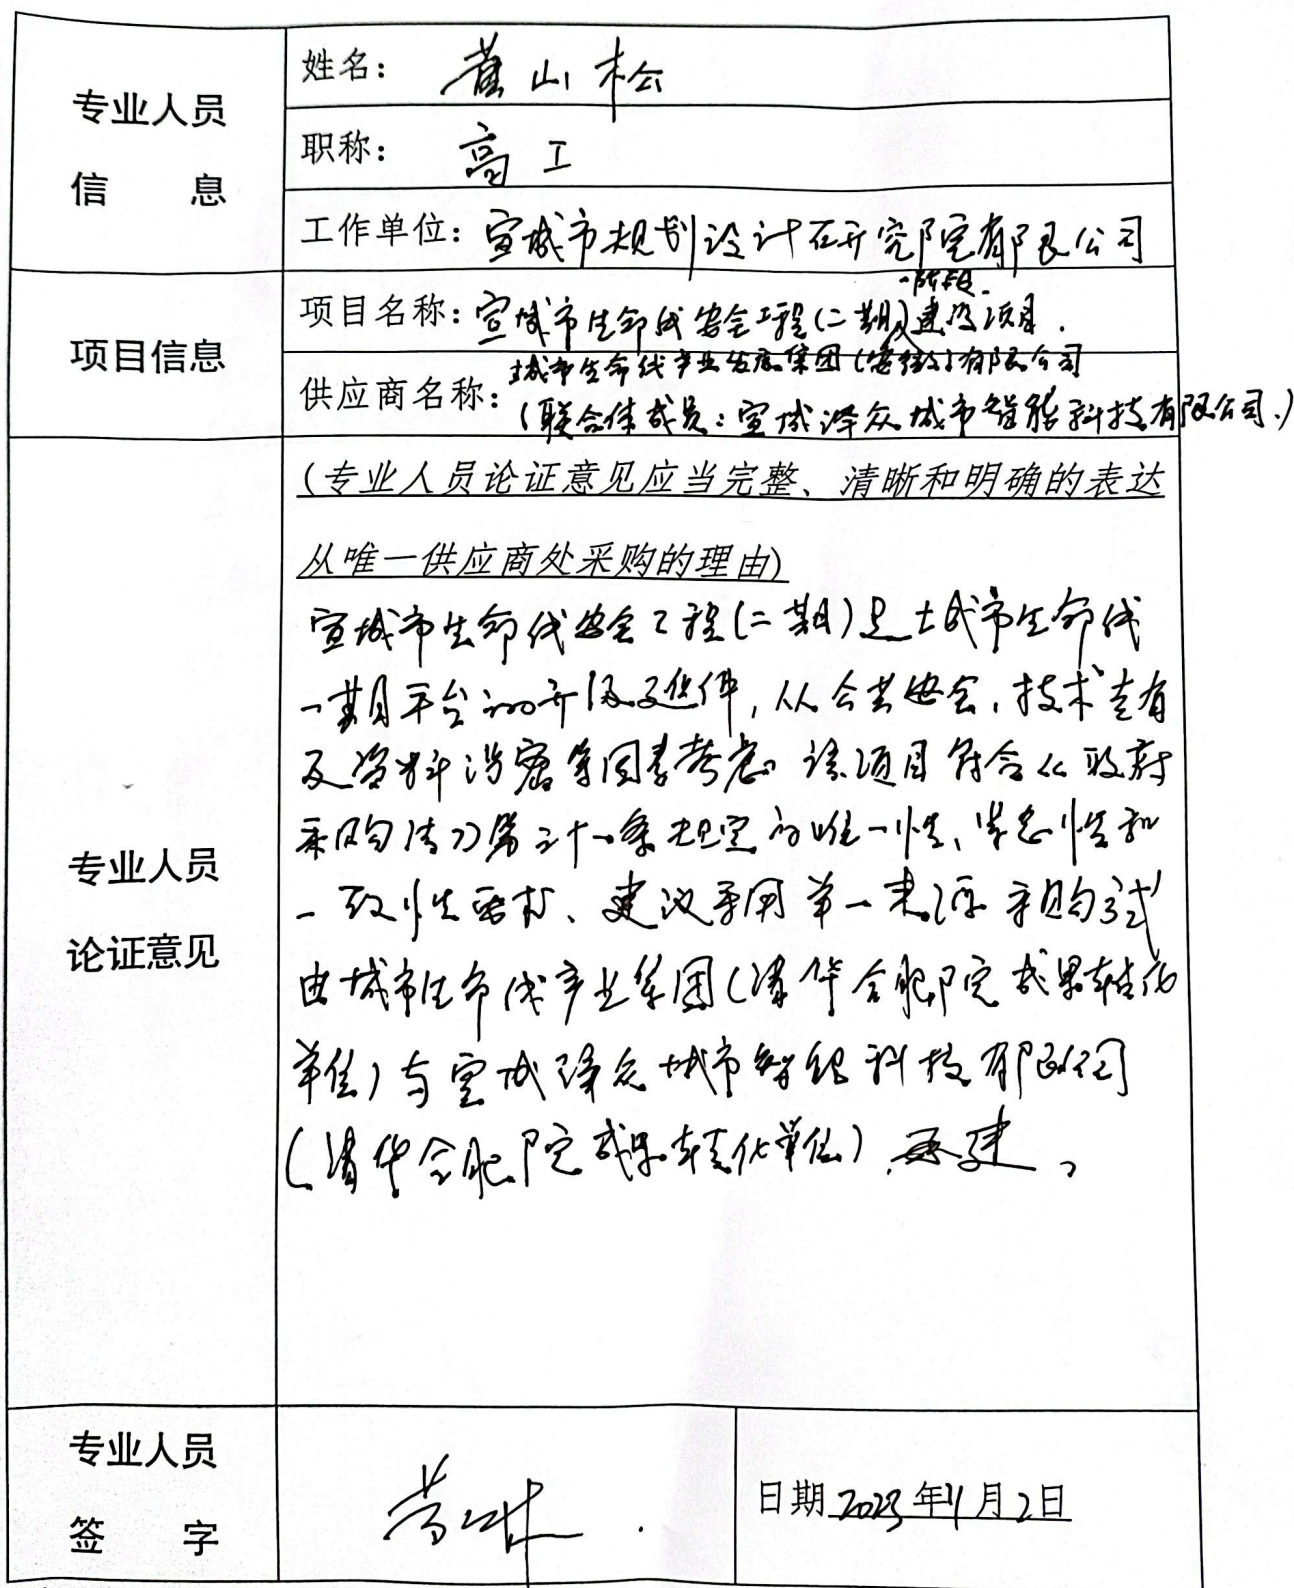 专业人员
信 息
姓名: 黄山松
职称: 高工
工作单位: 宣城市规划设计研究院有限公司
项目信息
一阶段
项目名称: 宣城市生命线安全工程(二期)建设项目.
城市生命线产业发展集团(安徽)有限公司
供应商名称:
(联合体成员: 宣城泽众城市智能科技有限公司.)
专业人员
论证意见
(专业人员论证意见应当完整、清晰和明确的表达
从唯一供应商处采购的理由)
宣城市生命线安全工程(二期)是城市生命线
一期平台的升级及延伸, 从公共安全, 技术专有
及资料涉密等因素考虑 该项目符合《政府
采购法》第三十一条规定的唯一性、紧急性和
一致性要求、建议采用单一来源采购方式
由城市生命线产业集团(清华合肥院成果转化
单位)与宣城泽众城市智能科技有限公司
(清华合肥院成果转化单位)承建。
专业人员
签 字
日期 2023年11月2日